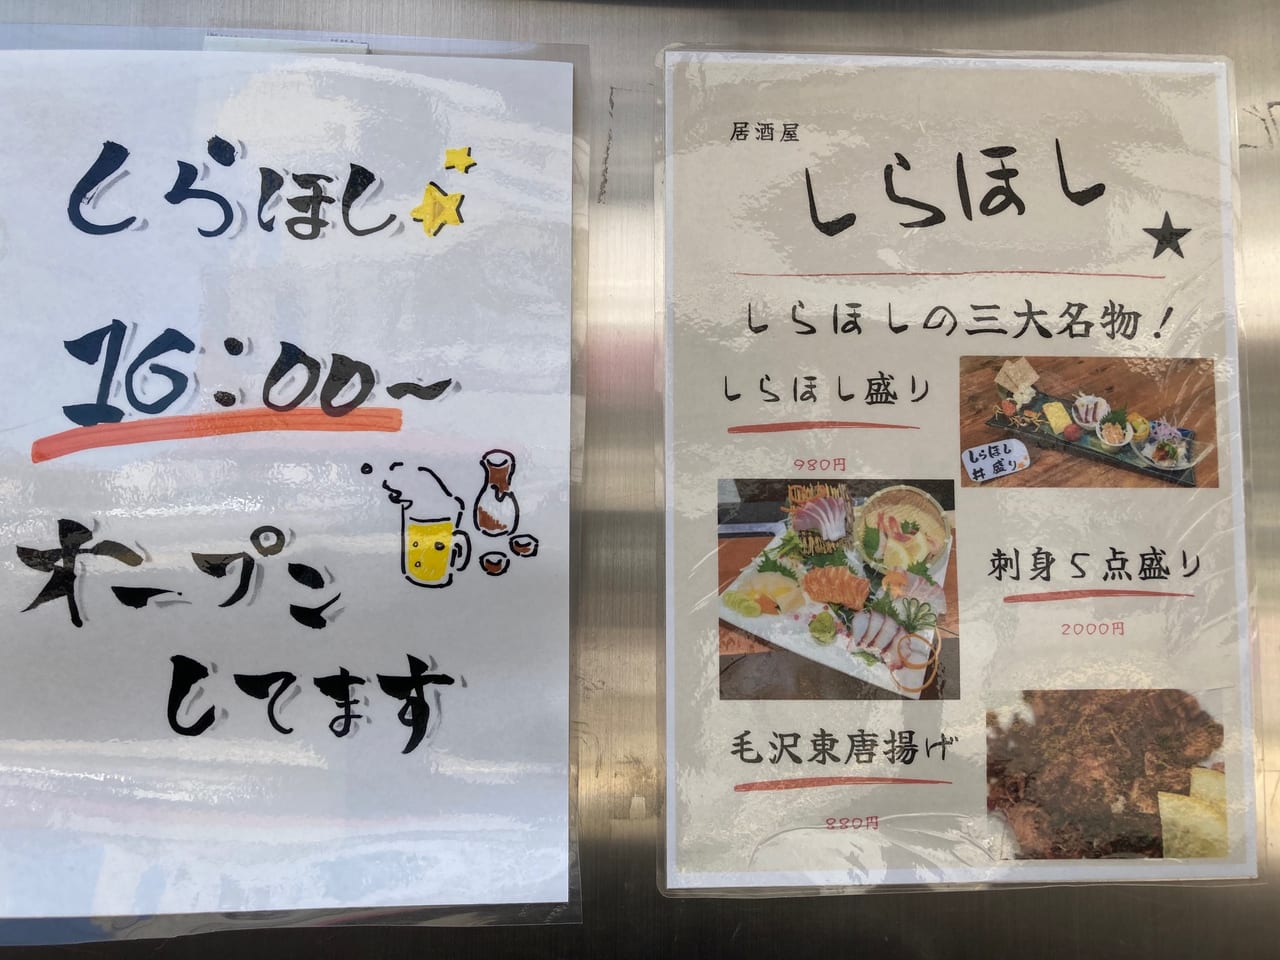 しらほし
16:00～
オープン
してます
居酒屋
しらほし
しらほしの三大名物！
しらほし盛り
980円
しらほし
丼盛り
刺身5点盛り
2000円
毛沢東唐揚げ
880円